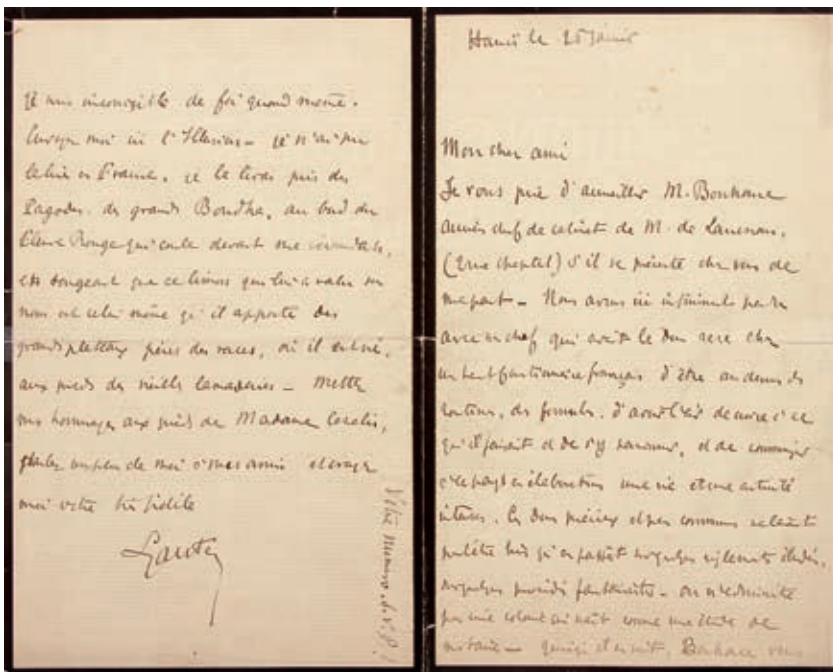 Hanoi le 25 Janvier
Mon cher ami
Je vous prie d'accueillir M. Bonhoure
ancien chef de cabinet de M. de Lanessan,
(2 rue Chaptal) s'il se présente chez vous de
ma part — Nous avons ici infiniment perdu
avec un chef qui avait le don rare chez
un haut fonctionnaire français d'être au dessus des
routines, des formules, d'avoir l'air de croire à ce
qu'il faisait et de s'y passionner, et de communiquer
à ce pays en élaboration une vie et une activité
intenses. Ces dons précieux et peu communs
peut être bien qu'on passât sur quelques règlements éludés,
sur quelques procédés fantaisistes — on n'administre
pas une colonie qui naît comme une étude de
notaire — quoiqu'il en soit, Bonhoure vous
Je suis incorrigible de foi quand même.
Envoyez moi ici l'Illusion — je n'ai pu
le lire en France, je le lirai près des
Pagodes, des grands Bouddha, au bord du
Fleuve Rouge qui coule devant ma véranda,
en songeant que ce limon qui lui a valu son
nom est celui même qu'il apporte des
grands plateaux pères des races, où il est né,
aux pieds des vieilles lamaseries — Mettez
mes hommages aux pieds de Madame Cazalis,
parlez un peu de moi à mes amis et croyez
moi votre très fidèle
Lyautey
Votre numéro s.v.p.!